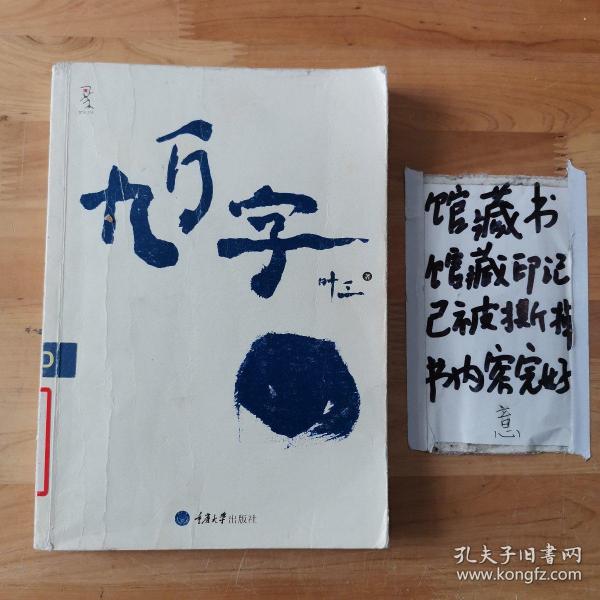 九百字
叶三 著
重庆大学出版社
馆藏书
馆藏印记
己被撕掉
书内容完好
意
孔夫子旧书网
www.kongfz.com